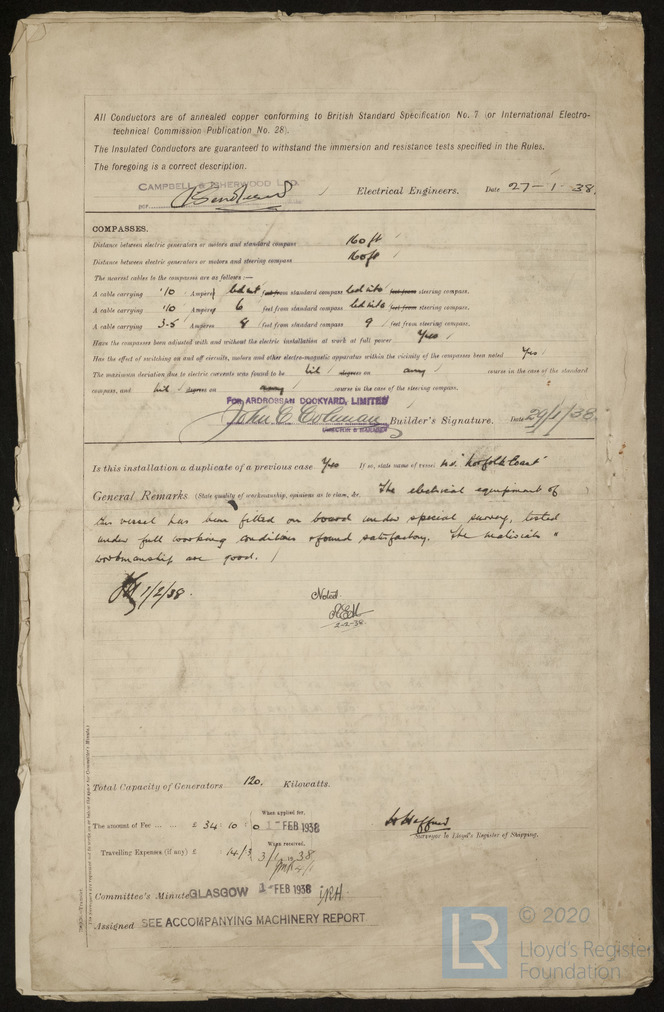 All Conductors are of annealed copper conforming to British Standard Specification No. 7 (or International Electro-
technical Commission Publication No. 28).
The Insulated Conductors are guaranteed to withstand the immersion and resistance tests specified in the Rules.
The foregoing is a correct description.
CAMPBELL & ISHERWOOD LTD.
per Electrical Engineers. Date 27-1-38.
COMPASSES.
Distance between electric generators or motors and standard compass 160 ft
Distance between electric generators or motors and steering compass 160 ft
The nearest cables to the compasses are as follows:—
A cable carrying .10 Amperes led into feet from standard compass led into feet from steering compass.
A cable carrying .10 Amperes 6 feet from standard compass led into feet from steering compass.
A cable carrying 3.5 Amperes 8 feet from standard compass 9 feet from steering compass.
Have the compasses been adjusted with and without the electric installation at work at full power Yes
Has the effect of switching on and off circuits, motors and other electro-magnetic apparatus within the vicinity of the compasses been noted Yes
The maximum deviation due to electric currents was found to be Nil degrees on any course in the case of the standard
compass, and Nil degrees on any course in the case of the steering compass.
FOR ARDROSSAN DOCKYARD, LIMITED
John C Coleman Builder's Signature. Date 29/1/38
DIRECTOR & MANAGER
Is this installation a duplicate of a previous case Yes If so, state name of vessel m.v. "Norfolk Coast"
General Remarks (State quality of workmanship, opinions as to class, &c. The electrical equipment of
this vessel has been fitted on board under special survey, tested
under full working conditions & found satisfactory. The materials &
workmanship are good.
1/2/38.
Noted
2-2-38
Total Capacity of Generators 120. Kilowatts.
When applied for,
The amount of Fee ... ... £ 34 : 10 : 0 1 - FEB 1938
Surveyor to Lloyd's Register of Shipping.
When received,
Travelling Expenses (if any) £ 14/3
Committee's Minute GLASGOW 1 - FEB 1938
Assigned SEE ACCOMPANYING MACHINERY REPORT
LR
© 2020
Lloyd's Register
Foundation